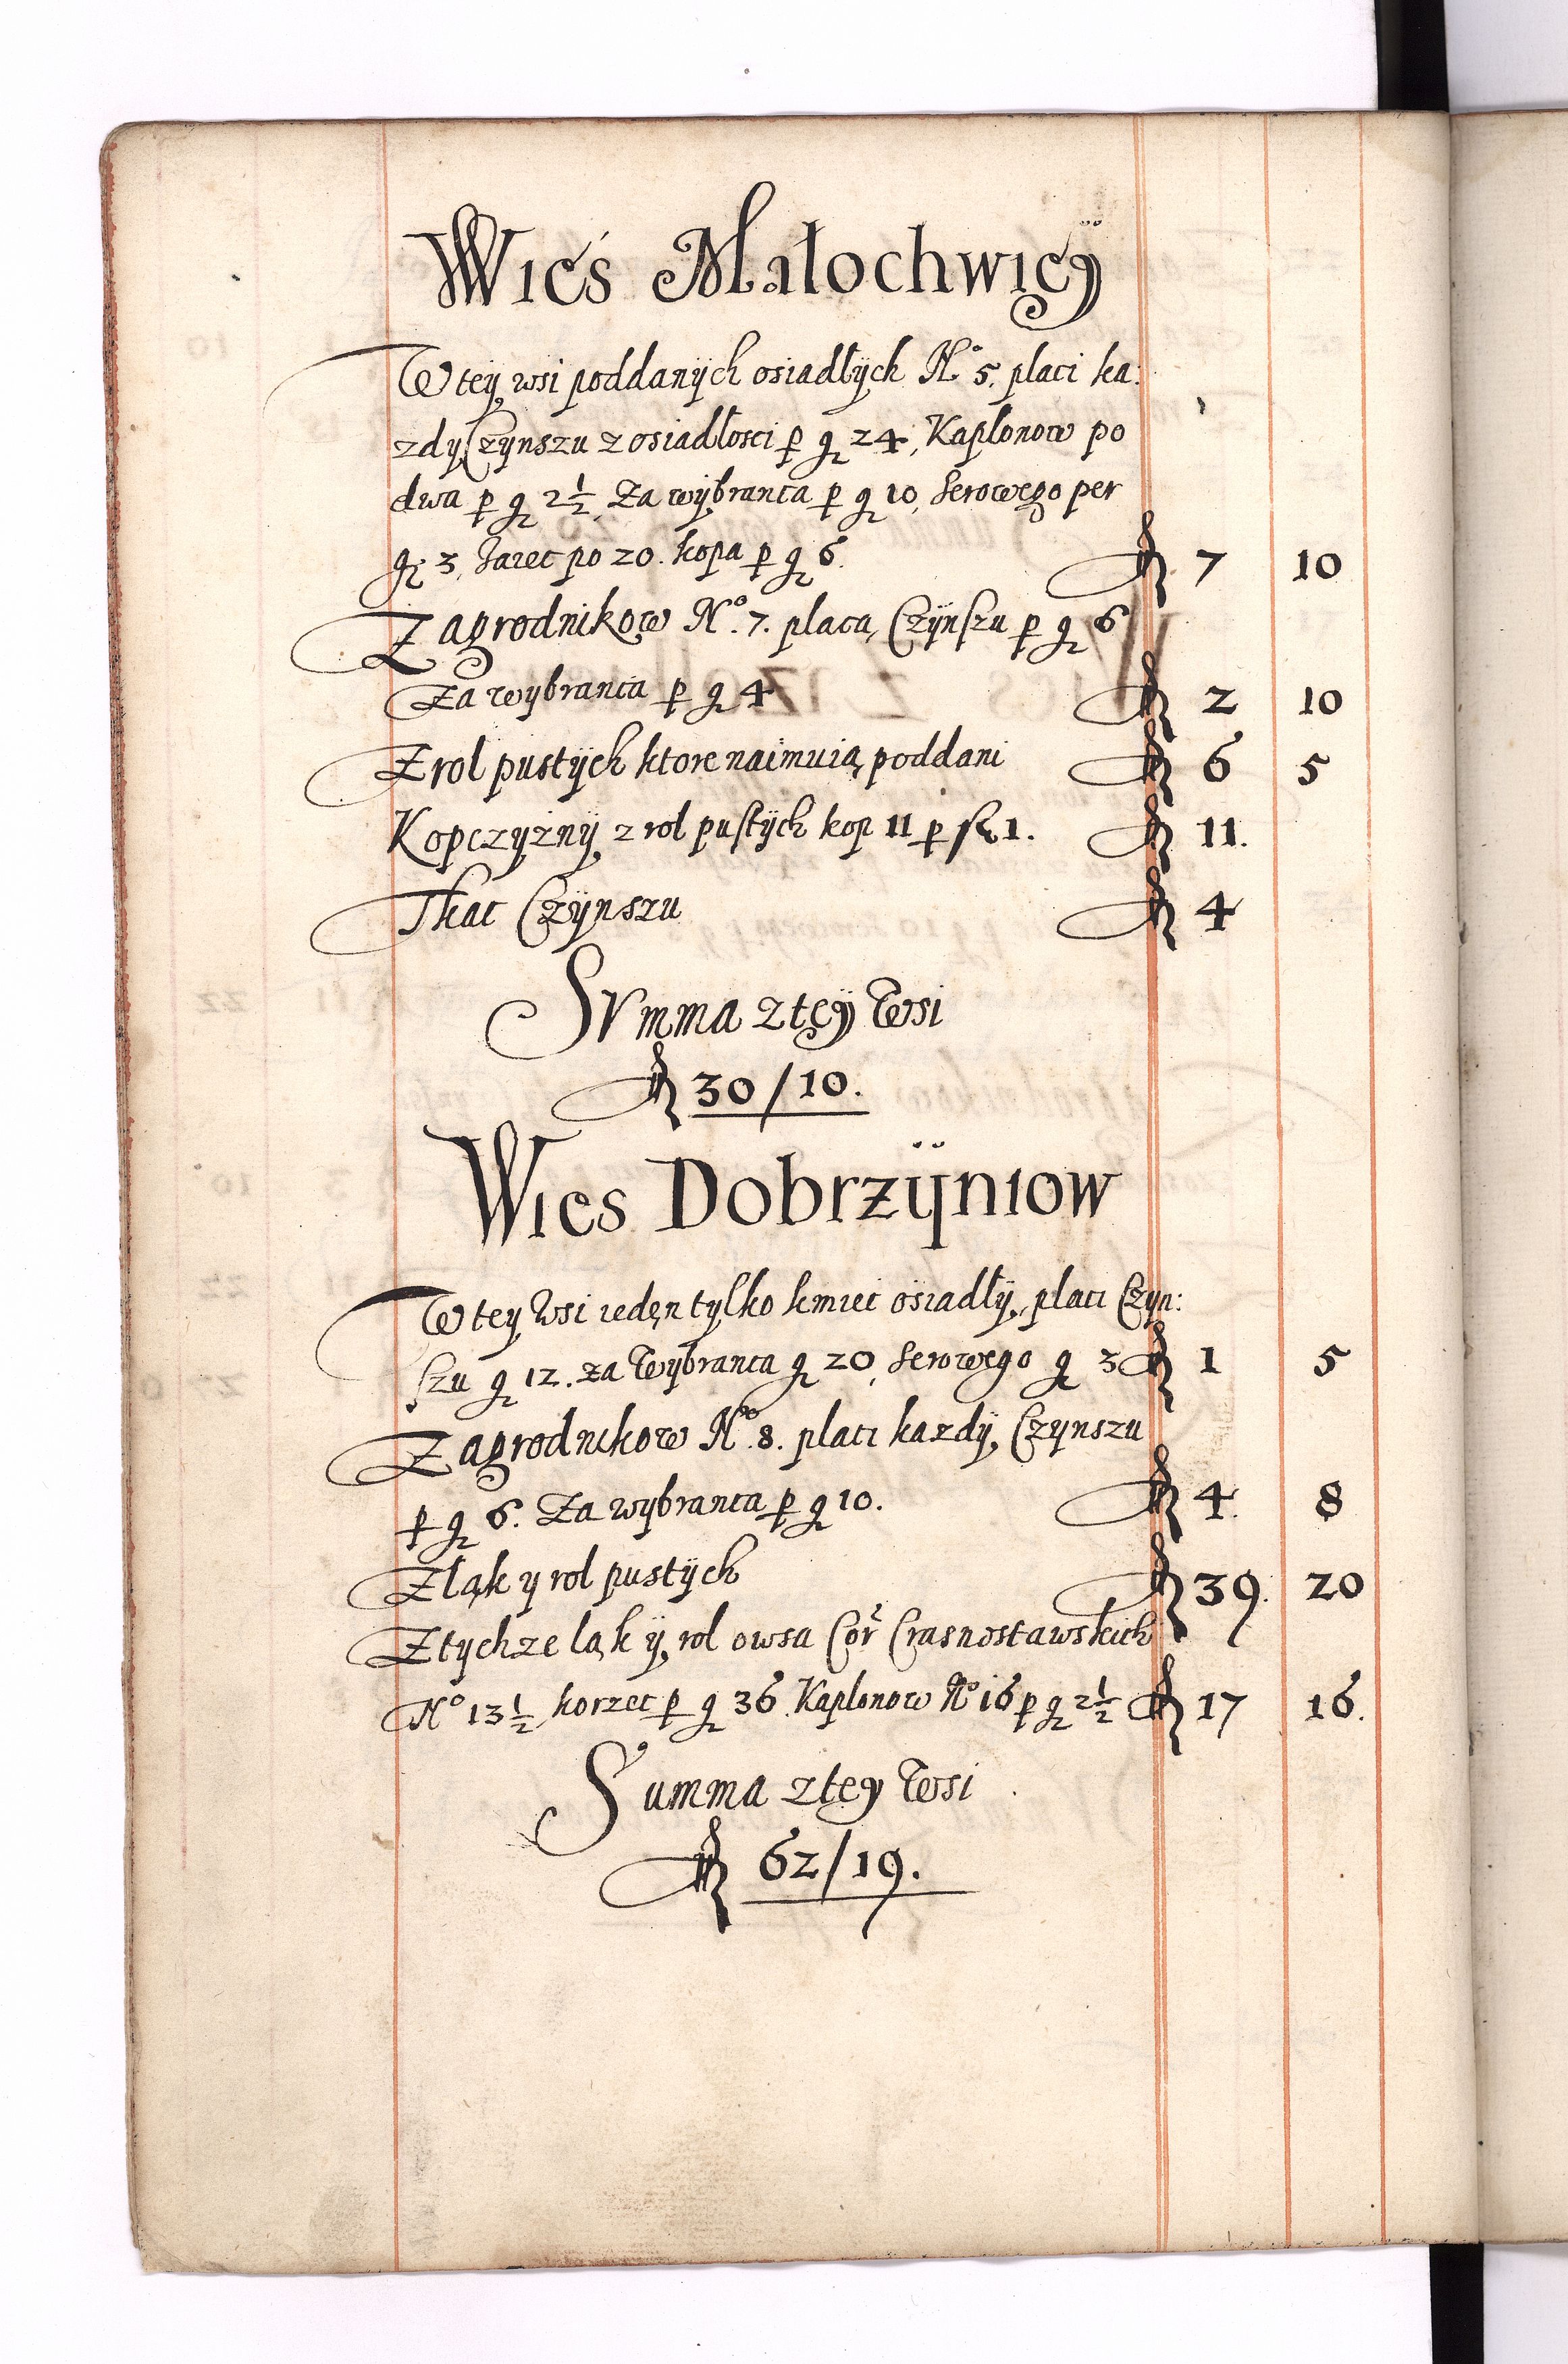 Wieś Małochwięÿ
W tey wsi poddanÿch osiadłÿch Nº 5. placi ka:
zdy Czÿnszu z osiadłosci p gr 24, Kaplonow po
dwa p gr 2 1/2, Za wÿbranca p gr 10, Serowego per
gr 3, Jaiec po 20. kopa p gr 6. fl 7 10
Zagrodnikow Nº. 7. placą Czÿnszu p gr 6
Za wybranca p gr 4 fl 2 10
Z rol pustÿch ktore naimuią poddani fl 6 5
Kopczyznÿ z rol pustÿch kop 11 p fl 1. fl 11.
Tkac Czÿnszu fl 4
Svmma z teÿ Wsi
fl 30/10.
Wies Dobrzÿniow
W tey Wsi ieden tylko kmiec osiadłÿ, placi Czyn:
szu gr 12. za Wÿbranca gr 20, Serowego gr 3 fl 1 5
Zagrodnikow Nº. 8. placi kazdÿ Czynszu
p gr 6. Za wybranca p gr 10. fl 4. 8
Z ląk y rol pustÿch fl 39. 20
Z tychze ląk ÿ rol owsa Cor Crasnostawskich
Nº 13 1/2, korzec p gr 36. Kaplonow Nº 16 p gr 2 1/2 fl 17 16.
Summa z tey Wsi
fl 62/19.